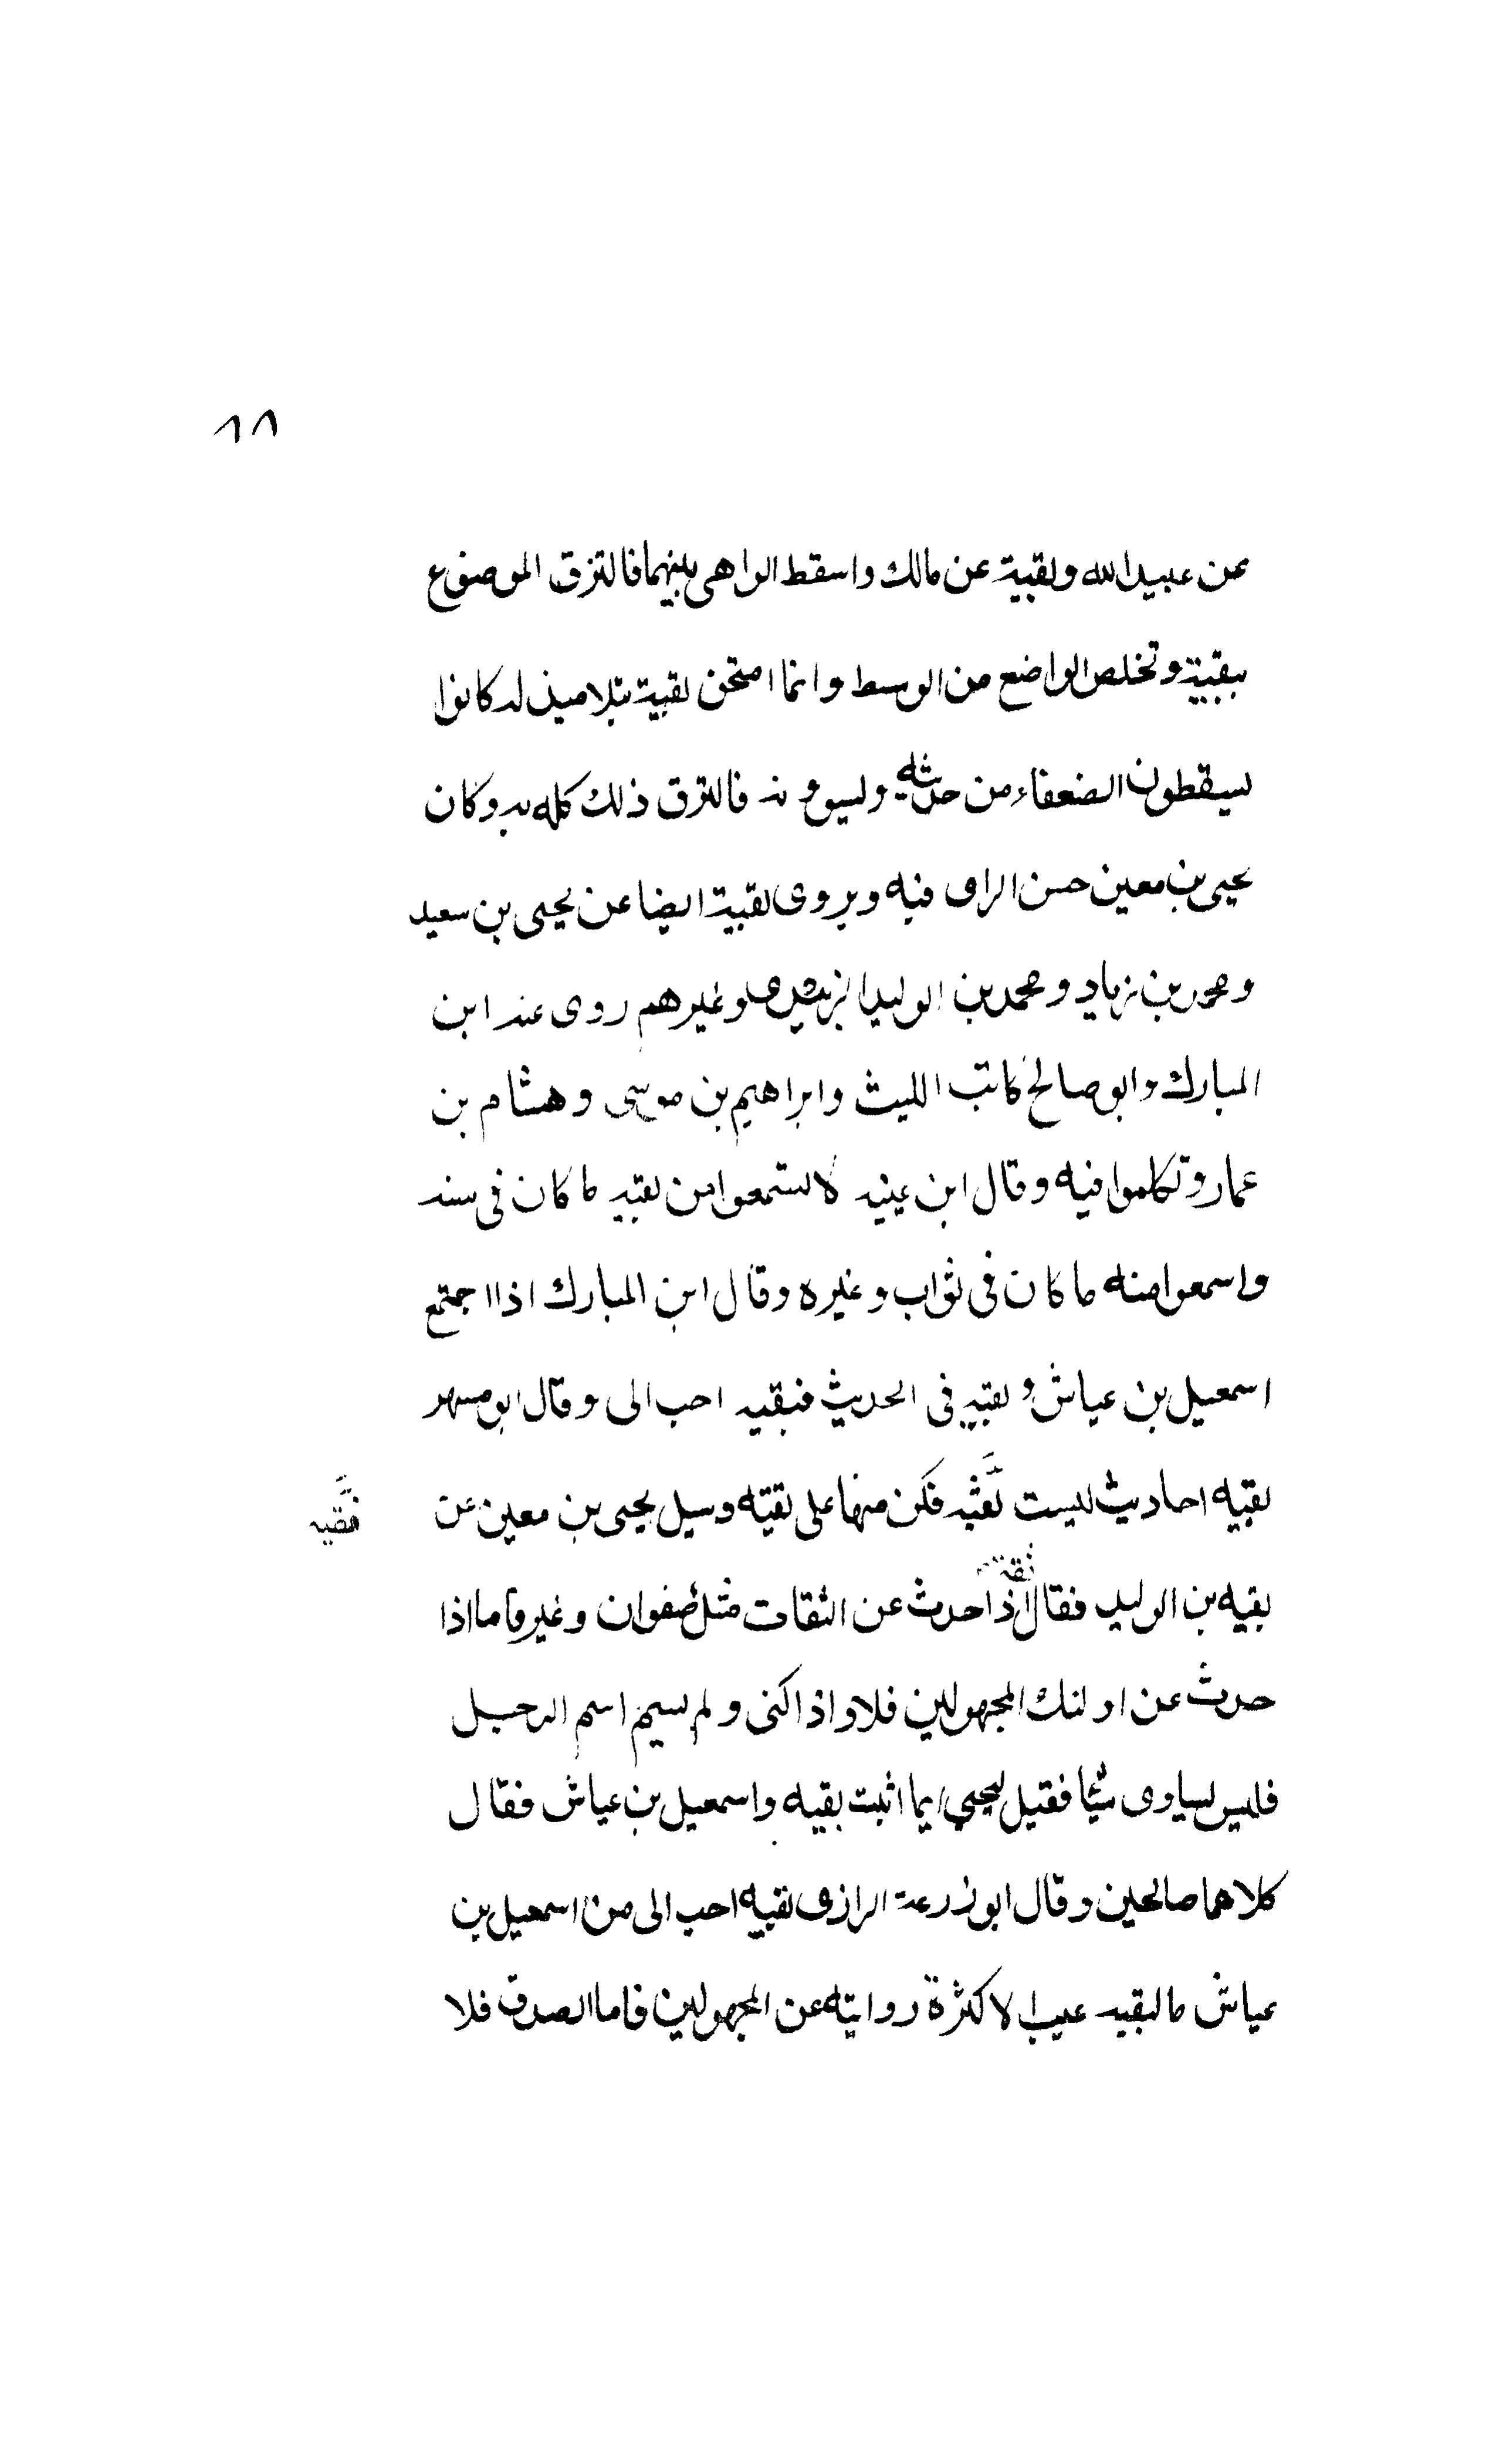 ٨٨
عن عبيدالله وبقية عن مالك واسقط الواهى بينهما فالتزق الموضوع
ببقية وتخلص الواضع من الوسط وانما امتحن بقية بتلاميذ له كانوا
يسقطون الضعفاء من حديثه ويسوونه فالتزق ذلك كله به وكان
يحيى بن معين حسن الراى فيه ويروى بقية ايضا عن يحيى بن سعيد
ومحمد بن زياد ومحمد بن الوليد الزبيدى وغيرهم روى عنه ابن
المبارك وابو صالح كاتب الليث وابراهيم بن موسى وهشام بن
عمار وتكلموا فيه وقال ابن عيينه لا تسمعوا من بقيه ما كان فى سنه
واسمعوا منه ما كان فى ثواب وغيره وقال ابن المبارك اذا اجتمع
اسمعيل بن عياش وبقيه فى الحديث فبقيه احب الى وقال ابو مسهر
بقيه احاديث ليست نقيه فكن منها على تقيه وسيل يحيى بن معين عن
نقيه
بقيه بن الوليد فقال ثقة اذا حدث عن الثقات مثل صفوان وغيره فاما اذا
حدث عن اولئك المجهولين فلا واذا كنى ولم يسم اسم الرجل
فليس يساوى شيئا فقيل ليحيى ايما اثبت بقيه واسمعيل بن عياش فقال
كلاهما صالحين وقال ابو زرعة الرازى بقيه احب الى من اسمعيل بن
عياش ما لبقيه عيب الا كثرة روايته عن المجهولين فاما الصدق فلا